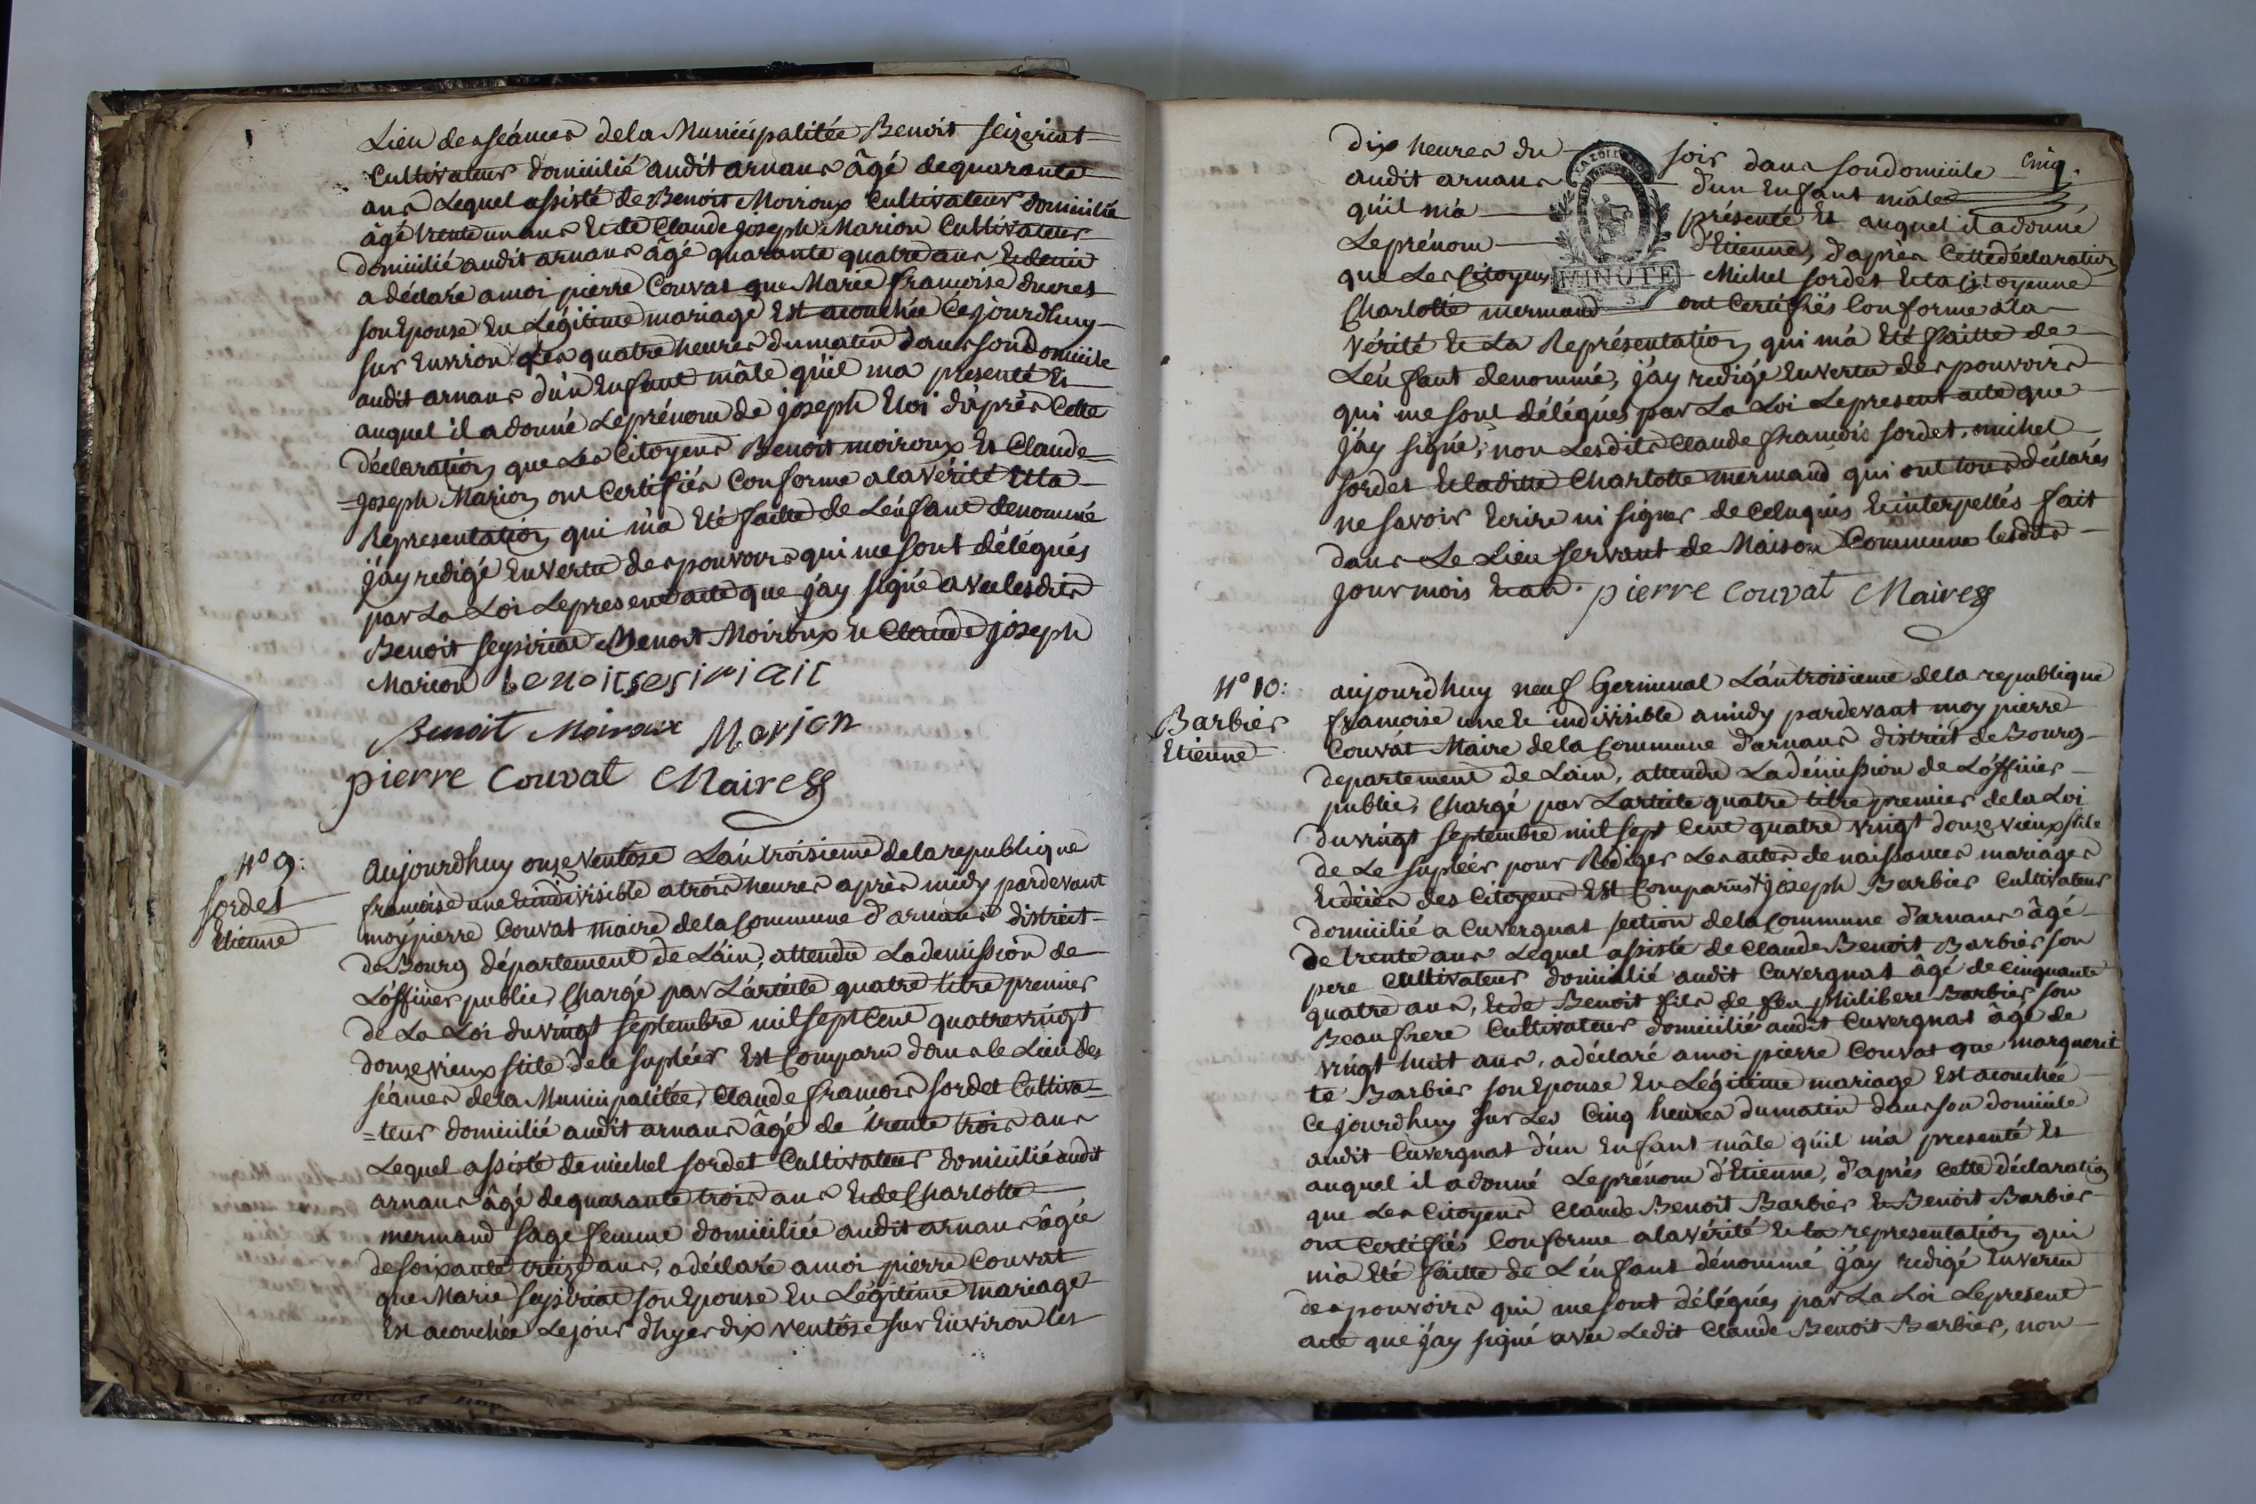 Lieu des séances dela Municipalitée Benoit Seizeriat
Cultivateur domicilié audit arnans âgé dequarante
ans Lequel assisté de Benoit Moiroux Cultivateur domicilié
âgé trente un ans Et de Claude joseph Marion Cultivateur
domicilié audit arnans âgé quarante quatre ans
a déclaré amoi pierre Couvat que Marie françoise
son Epouse En Légitime mariage Est acouchée Cejourdhuy
sur Environ les quatre heures dumatin dans son Domicile
audit arnans d'un Enfant mâle qu'il ma présenté Et
auquel il adonné Leprénom de joseph Eloi d'après Cette
déclaration que Les Citoyens Benoit moiroux Et Claude=
=joseph Marion ont Certifiés Conforme alavérité Et la
Representation qui m'a Eté faitte de L'enfant denommé
j'ay redigé Envertu des pouvoirs qui me sont délégués
par La Loi Lepresent acte que j'ay signé avec lesdits
Benoit seysiriat Benoit Moiroux Et Claude joseph
Marion benoit sesiriait
Benoit Moiroux Marion
pierre Couvat Maire
N° 9:
Sordet
Etienne
Aujourdhuy onze ventôse L'an troisieme dela republique
francoise une Et indivisible a trois heures après midy pardevant
moy pierre Couvat maire dela Commune d'arnans district
de Bourg département de L'ain, attendu Lademission de
L'officier public, Chargé par L'article quatre titre premier
de La Loi du vingt septembre mil sept Cent quatre vingt
douze vieux stile dele supléer Est Comparu dans le Lieu des
séances dela Municipalitée, Claude francois sordet Cultiva=
=teur domicilié audit arnans âgé de trente trois ans
Lequel assisté de michel sordet Cultivateur domicilié audit
arnans âgé dequarante trois ans Et de Charlotte
mermand sage femme domiciliée audit arnans âgée
desoixante treize ans, a déclaré a moi pierre Couvat
que Marie seysiriat son Epouse En Légitime mariage
Est acouchée Lejour d'hyer dix ventôse sur Environ les
Cinq.
dix heures du soir dans sondomicile
audit arnans d'un Enfant mâle
qu'il m'a présenté Et auquel il adonné
Leprénom d'Etienne, d'après Cette déclaration
que Les Citoyens Michel sordet Et la Citoyenne
MINUTE
Charlotte mermand ont Certifiés Conforme ala
vérité Et La Représentation qui m'a Eté faitte de
L'enfant denommé, j'ay redigé Envertu des pouvoirs
qui me sont délégués par La Loi Lepresent acte que
j'ay signé, non Lesdits Claude francois sordet, michel
sordet Et laditte Charlotte mermand qui ont tous déclarés
ne savoir Ecrire ni signer de Ce enquis Et interpellés fait
dans Le Lieu servant de Maison Commune lesdits
jour mois Et an. pierre Couvat Maire
N° 10:
Barbier
Etienne
aujourdhuy neuf Germinal L'an troisieme dela republique
francoise une Et indivisible a midy pardevant moy pierre
Couvat Maire dela Commune d'arnans district de Bourg
departement de Lain, attendu Ladémission de L'officier
public, Chargé par L'article quatre titre premier dela Loi
du vingt septembre mil sept Cent quatre vingt douze vieux stile
de Le supléer pour Rédiger Les actes de naissances mariages
Et décès des Citoyens Est Comparus joseph Barbier Cultivateur
domicilié a Cuvergnat section dela Commune d'arnans âgé
de trente ans Lequel assisté de Claude Benoit Barbier son
pere Cultivateur domicilié audit Cuvergnat âgé de Cinquante
quatre ans, Et de Benoit fils de feu Philibert Barbier son
Beaufrere Cultivateur domicilié audit Cuvergnat âgé de
vingt huit ans, a déclaré a moi pierre Couvat que marguerit
te Barbier son Epouse En Légitime mariage Est acouchée
Cejourdhuy sur Les Cinq heures dumatin dans son domicile
audit Cuvergnat d'un Enfant mâle qu'il m'a presenté Et
auquel il adonné Leprénom d'Etienne, d'après Cette déclaration
que Les Citoyens Claude Benoit Barbier Et Benoit Barbier
ont Certifiés Conforme ala vérité Et la representation qui
m'a Eté faitte de L'enfant dénommé, j'ay redigé Envertu
des pouvoirs qui me sont délégués par La Loi Lepresent
acte que j'ay signé avec Ledit Claude Benoit Barbier, non